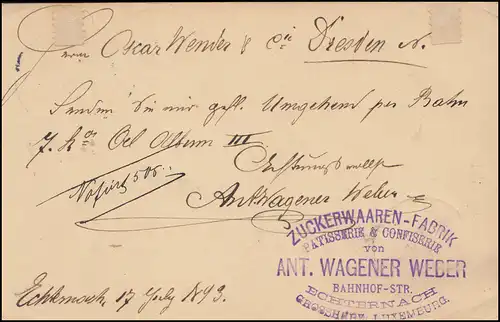 Herrn Oscar Wender & Cie Dresden N.
Senden Sie mir gefl. Umgehend per Bahn
7. Kos Oel Album III
Achtungsvollst
Ant Wagener Weber
ZUCKERWAAREN-FABRIK
PATISSERIE & CONFISERIE
von
ANT. WAGENER WEBER
BAHNHOF-STR.
ECHTERNACH
GROSSHERZ. LUXEMBURG.
Echternach 17 July 1893.